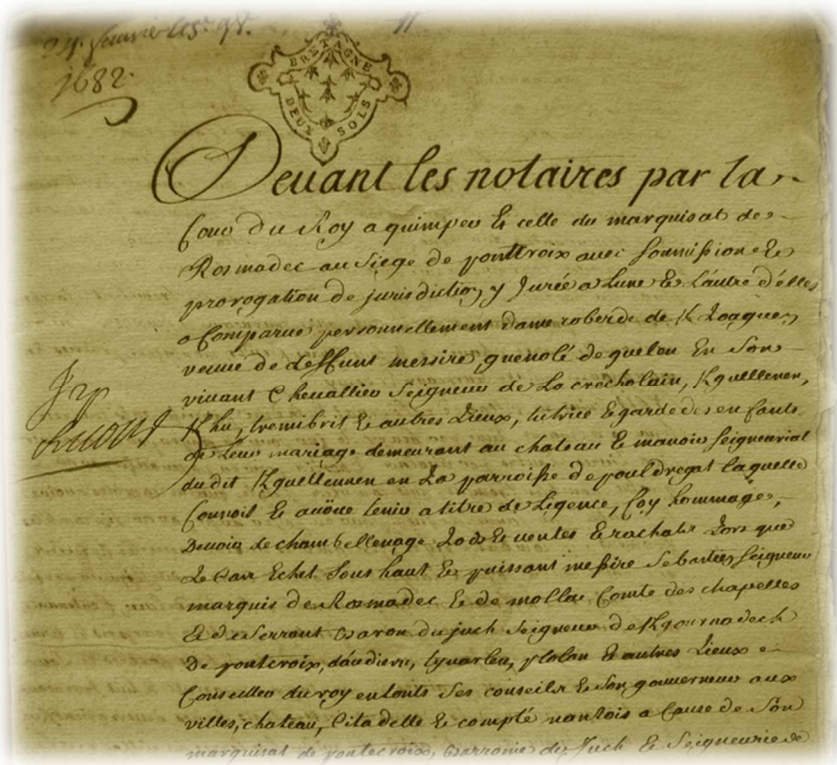 24. janvier
1682.
BRETAGNE
DEUX SOLS
Devant les notaires par la
Cour du Roy a quimper & celle du marquisat de
Rosmadec au siege de ponttcroix avec soumission &
prorogation de jurisdiction y Jurée a Lune & Lautre d'elles
a Comparue personnellement dame de K
veuve de deffunt messire guenolé de quelen En son
vivant Chevallier Seigneur de La crocholain, Kquellenen,
Khu, & autres Lieux, tutrice & garde des enfants
de Leur mariage demeurant au chateau & manoir seigneurial
du dit Kquellennen en La parroisse de pouldregat laquelle
Connoit & avoue tenir a titre de Ligence, foy hommage,
Devoir de chambellenage Lods & ventes & rachat Lors que
Le Cas Echet sous haut & puissant messire sebastien seigneur
marquis de Rosmadec & de mollac Comte des chapelles
& de serrant baron du juch seigneur de Kgournadech
De pontcroix, daudiern, tyvarlen, & autres Lieux
Conseiller du roy en touts ses conseils & son gouverneur aux
villes, chateau, Citadelle & compté nantois a Cause de Son
marquisat de pontecroix, barronie du Juch & seigneurie de